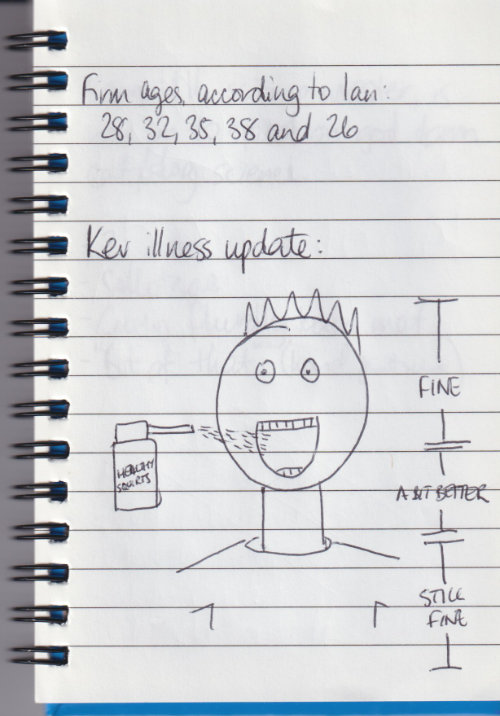 Firm ages, according to Ian:
28, 32, 35, 38 and 26
Kev illness update:
FINE
HEALTHY
SQUIRTS
A BIT BETTER
STILL
FINE